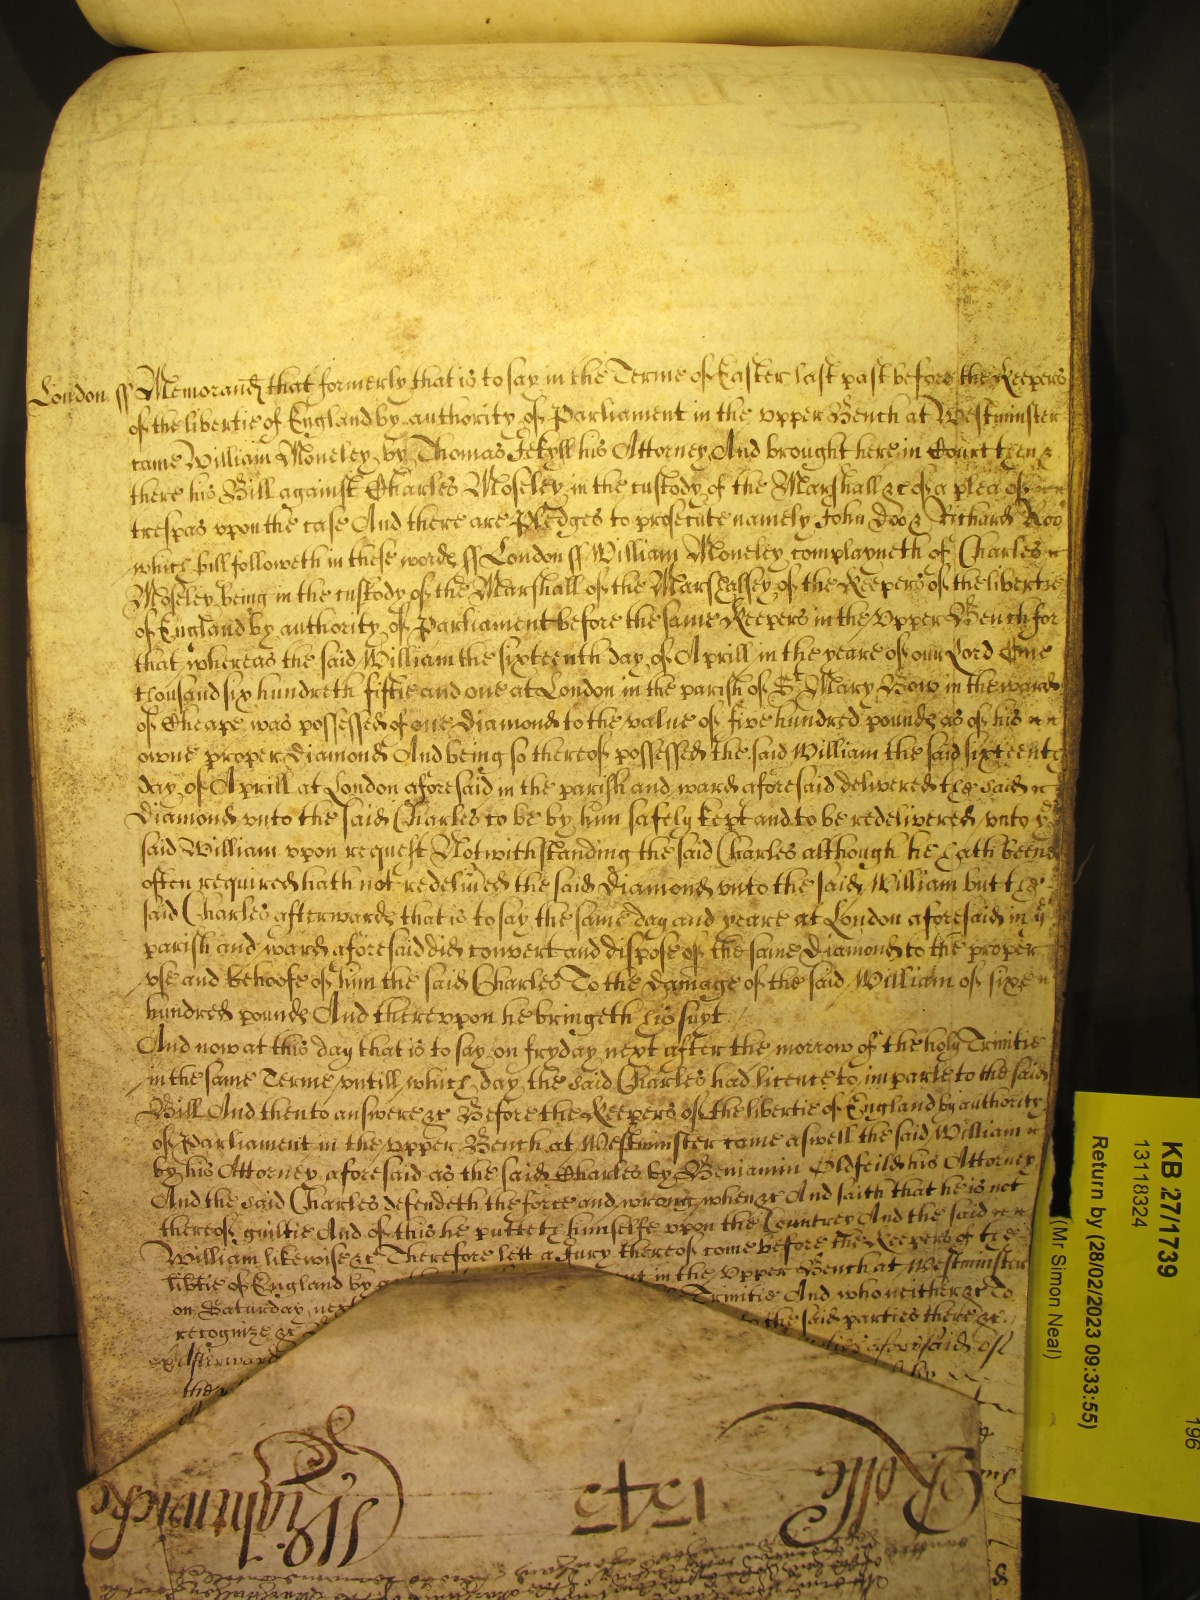 London ss Memorand that formerly that is to say in the Terme of Easter last past before the Keepers
of the libertie of England by authority of Parliament in the vpper Bench at Westminster
came William Moneley by Thomas Jekyll his Attorney And brought here in Court then &
there his Bill against Charles Moseley in the custody of the Marshall &c of a plea of
trespas vpon the case And there are Pledges to prosecute namely John Doo & Richard Roo
which bill followeth in these words ss London ss William Moneley complayneth of Charles
Moseley being in the custody of the Marshall of the Marshalsey of the Keepers of the libertie
of England by authority of Parliament before the same Keepers in the Vpper Bench for
that whereas the said William the sixteenth day of Aprill in the yeare of our Lord One
thousand six hundreth fiftie and one at London in the parish of St Mary Bow in the ward
of Cheape was possessed of one diamond to the value of five hundred pounds as of his
owne proper diamond And being so thereof possessed the said William the said sixteenth
day of Aprill at London aforesaid in the parish and ward aforesaid delivered the said
diamond vnto the said Charles to be by him safely kept and to be redelivered vnto ye
said William vpon request Notwithstanding the said Charles although he hath beene
often required hath not redeliued the said diamond vnto the said William but the
said Charles afterwards that is to say the same day and yeare at London aforesaid in ye
parish and ward aforesaid did convert and dispose of the same diamond to the proper
vse and behoofe of him the said Charles To the damage of the said William of sixe
hundred pounds And therevpon he bringeth his suyt
And now at this day that is to say on fryday next after the morrow of the holy Trinitie
in the same Terme vntill which day the said Charles had licence to imparle to the said
Bill And then to answere &c Before the Keepers of the libertie of England by authority
of Parliament in the vpper Bench at Westminster came aswell the said William
by his Attorney aforesaid as the said Charles by Beniamin Oldfeild his Attorney
And the said Charles defendeth the force and wrong when &c And saith that he is not
thereof guiltie And of this he putteth himselfe vpon the Countrey And the said
William likewise &c Therefore lett a Jury thereof come before the Keepers of the
libtie of England by in the Vpper Bench at Westminster
on Saturday next Trinitie And who neither &c To
recognize &c the said parties there &c
Afterward aforesaid of
the
Rolle 1545 Wightwicke
KB 27/1739
13118324
Return by (28/02/2023 09:33:55)
(Mr Simon Neal)
196